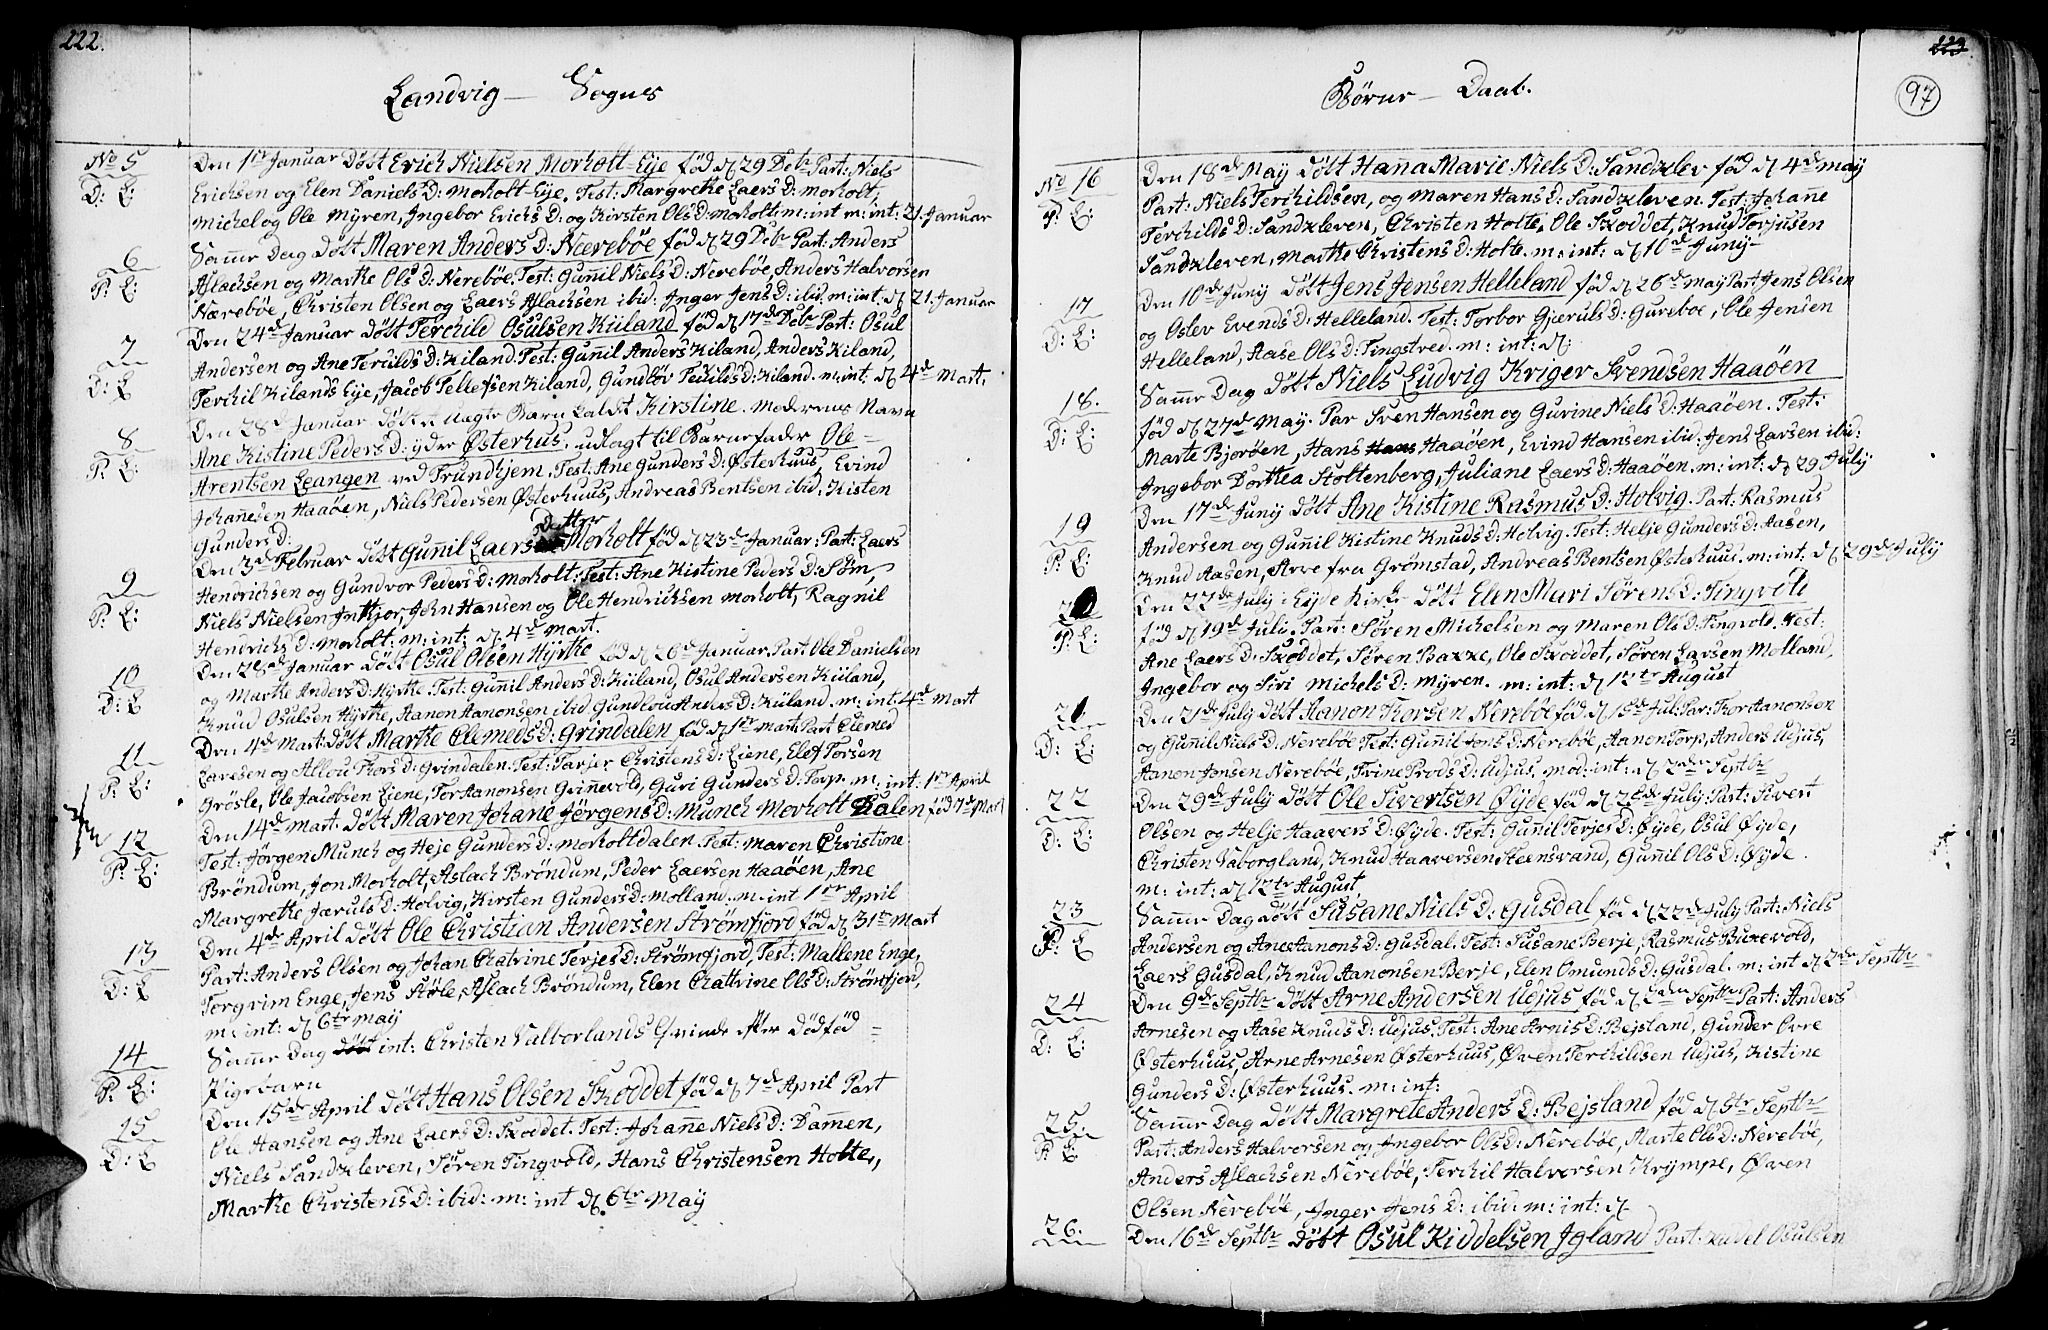 222.
Landvig — Sogns
No 5
D: E:
Den 1ste Januar Døbt Erich Nielsen Morholt-Eje fød d 29 Debr Part: Niels
Erichsen og Elen Daniels D: Morholt Eje. Test: Margrethe Laers D: Morholt,
Michel og Ole Myren, Ingebor Erichs D: og Kirsten Ols D: Morholt: m: int m: int: 21. Januar
6
P: E:
Samme Dag døbt Maren Anders D: Nærebøe fød d 29 Debr Part: Anders
Aslachsen og Marthe Ols D: Nerebøe. Test: Gunnil Niels D: Nerebøe, Anders Halvorsen
Nærebøe, Christen Olsen og Laers Aslachsen ibid: Inger Jens D: ibid. m: int. d 21. Januar
7
D: E
Den 24de Januar døbt Terchild Osulsen Kiiland fød d 17de Debr Part: Osul
Andersen og Ane Terulds D: Kiland. Test: Gunil Anders Kiland, Anders Kiland,
Terchil Kilands Eje, Jacob Tellefsen Kiland, Gundløv D: Kiland. m: int: d 4de Mart.
8
P: E:
Den 28de Januar døbt et uægte Barn kaldt Kirstine. Moderens Navn
Ane Kistine Peders D: ydre Østerhus. udlagt til Barnefader Ole
Arentsen Leangen ved Trundhjem. Test: Ane Gunders D: Østerhuus, Evind
Johannesen Haaøen, Niels Pedersen Østerhuus, Andreas Bentsen ibid: Kisten
Gunders D:
9
P: E:
Datter
Den 3de Februar døbt Gunnil Laers Morholt fød d 23de Januar: Part: Laers
Hendrichsen og Gundvor Peders D: Morholt: Test: Ane Kistine Peders D: Søm,
Niels Nielsen Inthjor, John Hansen og Ole Hendrichsen Morholt, Ragnil
Hendrichs D: Morholt: m: int: d 4de Mart.
10
D: E
Den 28de Januar døbt Osul Olsen Hyrthe fød d 26de Januar. Part Ole Danielsen
og Marthe Anders D: Hyrthe. Test: Gunil Anders D: Kiiland, Osul Andersen Kiiland,
Knud Osulsen Hyrthe, Aanon Aanonsen ibid Gundlou Anders D: Kiiland. m: int: 4de Mart
11
P: E:
Den 4de Mart: døbt Marthe Clemeds D: Grindalen fød d 1ste Mart: Part Clemed
Laresen og Allou Thors D: Grindalen. Test: Tarjer Christens D: Eiene, Elef Torsen
Grøsle, Ole Jacobsen Eiene, Tor Aanonsen Grinnevold, Guri Gunders D: Torp. m: int: 1ste April
12
P: E:
Den 14de Mart. døbt Maren Johane Jørgens D: Munch Morholt Dalen fød 7de Mart
Test: Jørgen Munch og Heje Gunders D: Morholtdalen. Test: Maren Christine
Brøndum, Jon Morholt, Aslach Brøndum, Peder Laersen Haaøen, Ane
Margrethe Jæruls D: Holvig, Kirsten Gunders D: Molland. m: int 1ste April
13
D: E
Den 4de April døbt Ole Christian Andersen Strømfjord fød d 31te Mart
Part: Anders Olsen og Johan Chatrine Terjes D: Strømfjord, Test: Mallene Enge,
Torgrim Enge, Jens Støle, Aslach Brøndum, Elen Chattrine Ols D: Strømfjord,
m: int: d 6te May
14
P: E:
Samme Dag døbt int: Christen Valborlands Qvinde efter dødfød
Pigebarn
15
D: E
Den 15de April døbt Hans Olsen Skoddet fød d 7de April Part
Ole Hansen og Ane Laers D: Skoddet. Test: Johanne Niels D: Dammen,
Niels Sandkleven, Søren Tingvold, Hans Christensen Holte,
Marthe Christens D: ibid: m: int d 6te May
223
97
Børne — Daab.
No 16
P: E:
Den 18de May døbt Hanna Marie Niels D: Sandklev fød d 4de May
Part: Niels Terchildsen, og Maren Hans D: Sandkleven. Test: Johanne
Terchilds D: Sandkleven, Christen Holte, Ole Skoddet, Knud Torjusen
Sandkleven, Marthe Christens D: Holte. m: int: d 10de Junÿ
17
D: E:
Den 10de Junÿ døbt Jens Jensen Helleland fød d 26de May Part Jens Olsen
og Oslev Evends D: Helleland. Test: Torbor Gjeruls D: Gureboe, Ole Jensen
Helleland, Aase Ols D: Tingstved. m: int: d
18.
D: E:
Samme Dag døbt Niels Ludvig Kriger Svendsen Haaøen
fød d 27de May. Par Sven Hansen og Gurine Niels D: Haaøen. Test:
Marte Bjorøen, Hans Hans Haaøen, Evind Hansen ibid: Jens Larsen ibid:
Ingebor Dorthea Stoltenberg, Juliane Laers D: Haaøen. m: int: d 29 Julÿ
19
P: E:
Den 17de Junÿ døbt Ane Kistine Rasmus D: Holvig. Part: Rasmus
Andersen og Gunnil Kistine Knuds D: Holvig. Test: Helje Gunders D: Aasen,
Knud Aasen, Arve fra Grømstad, Andreas Bentsen Østerhuus. m: int: d 29de Julÿ
20
P: E:
Den 22de Julÿ i Eyde Kirke døbt Elen Mari Sørens D: Tingvoll
fød d 19de Juli. Part: Søren Michelsen og Maren Ols D: Tingvold. Test:
Ane Laers D: Skoddet, Søren Bakke, Ole Skoddet, Søren Larsen Molland,
Ingebor og Siri Michels D: Myren. m: int: d 12te August
21
D: E:
Den 21de Julÿ døbt Aanon Thorsen Nerebøe fød d 15de Jul: Par: Thor Aanonsen
og Gunnil Niels D: Nerebøe Test: Gunnil Jons D: Nerebøe, Aanon Torp, Anders Udjus,
Aanon Jensen Nerebøe, Trine Prods D: Udjus, mod: int: d 2den Septbr
22
D: E:
Den 29de Julÿ døbt Ole Sivertsen Øyde fød d 25de Julÿ: Part: Sivert
Olsen og Helje Haavers D: Øyde. Test: Gunnil Terjes D: Øyde, Osul Øyde,
Christen Vaborgland, Knud Haaversen Steensvand, Gunnil Ols D: Øyde.
m: int: d 12te August
23
P: E
Samme Dag døbt Susane Niels D: Gusdal fød d 22de Julÿ Part: Niels
Andersen og Ane Aanons D: Gusdal. Test: Susane Berje, Rasmus Buxevold,
Laers Gusdal, Knud Aanonsen Berje, Elen Omunds D: Gusdal. m: int d 2de Septbr
24
D: E:
Den 9de Septbr døbt Arne Andersen Udjus fød d 2den Septbr Part: Anders
Arnesen og Aase Knuds D: Udjus. Test: Ane Arnis D: Bejsland, Gunder Øvre
Østerhuus, Arne Arnesen Østerhuus, Øven Terchildsen Udjus, Kistine
Gunders D: Østerhuus. m: int:
25.
P: E
Samme Dag døbt Margrete Anders D: Bejsland fød d 5te Septbr
Part: Anders Halvorsen og Ingebor Ols D: Nerebøe, Marte Ols D: Nerebøe,
Anders Aslachsen Nerebøe, Terchil Halvorsen Krympe, Øven
Olsen Nerebøe, Inger Jens D: ibid: m: int: d
26.
Den 16de Septbr døbt Osul Kiddelsen Igland Part: Osulsen